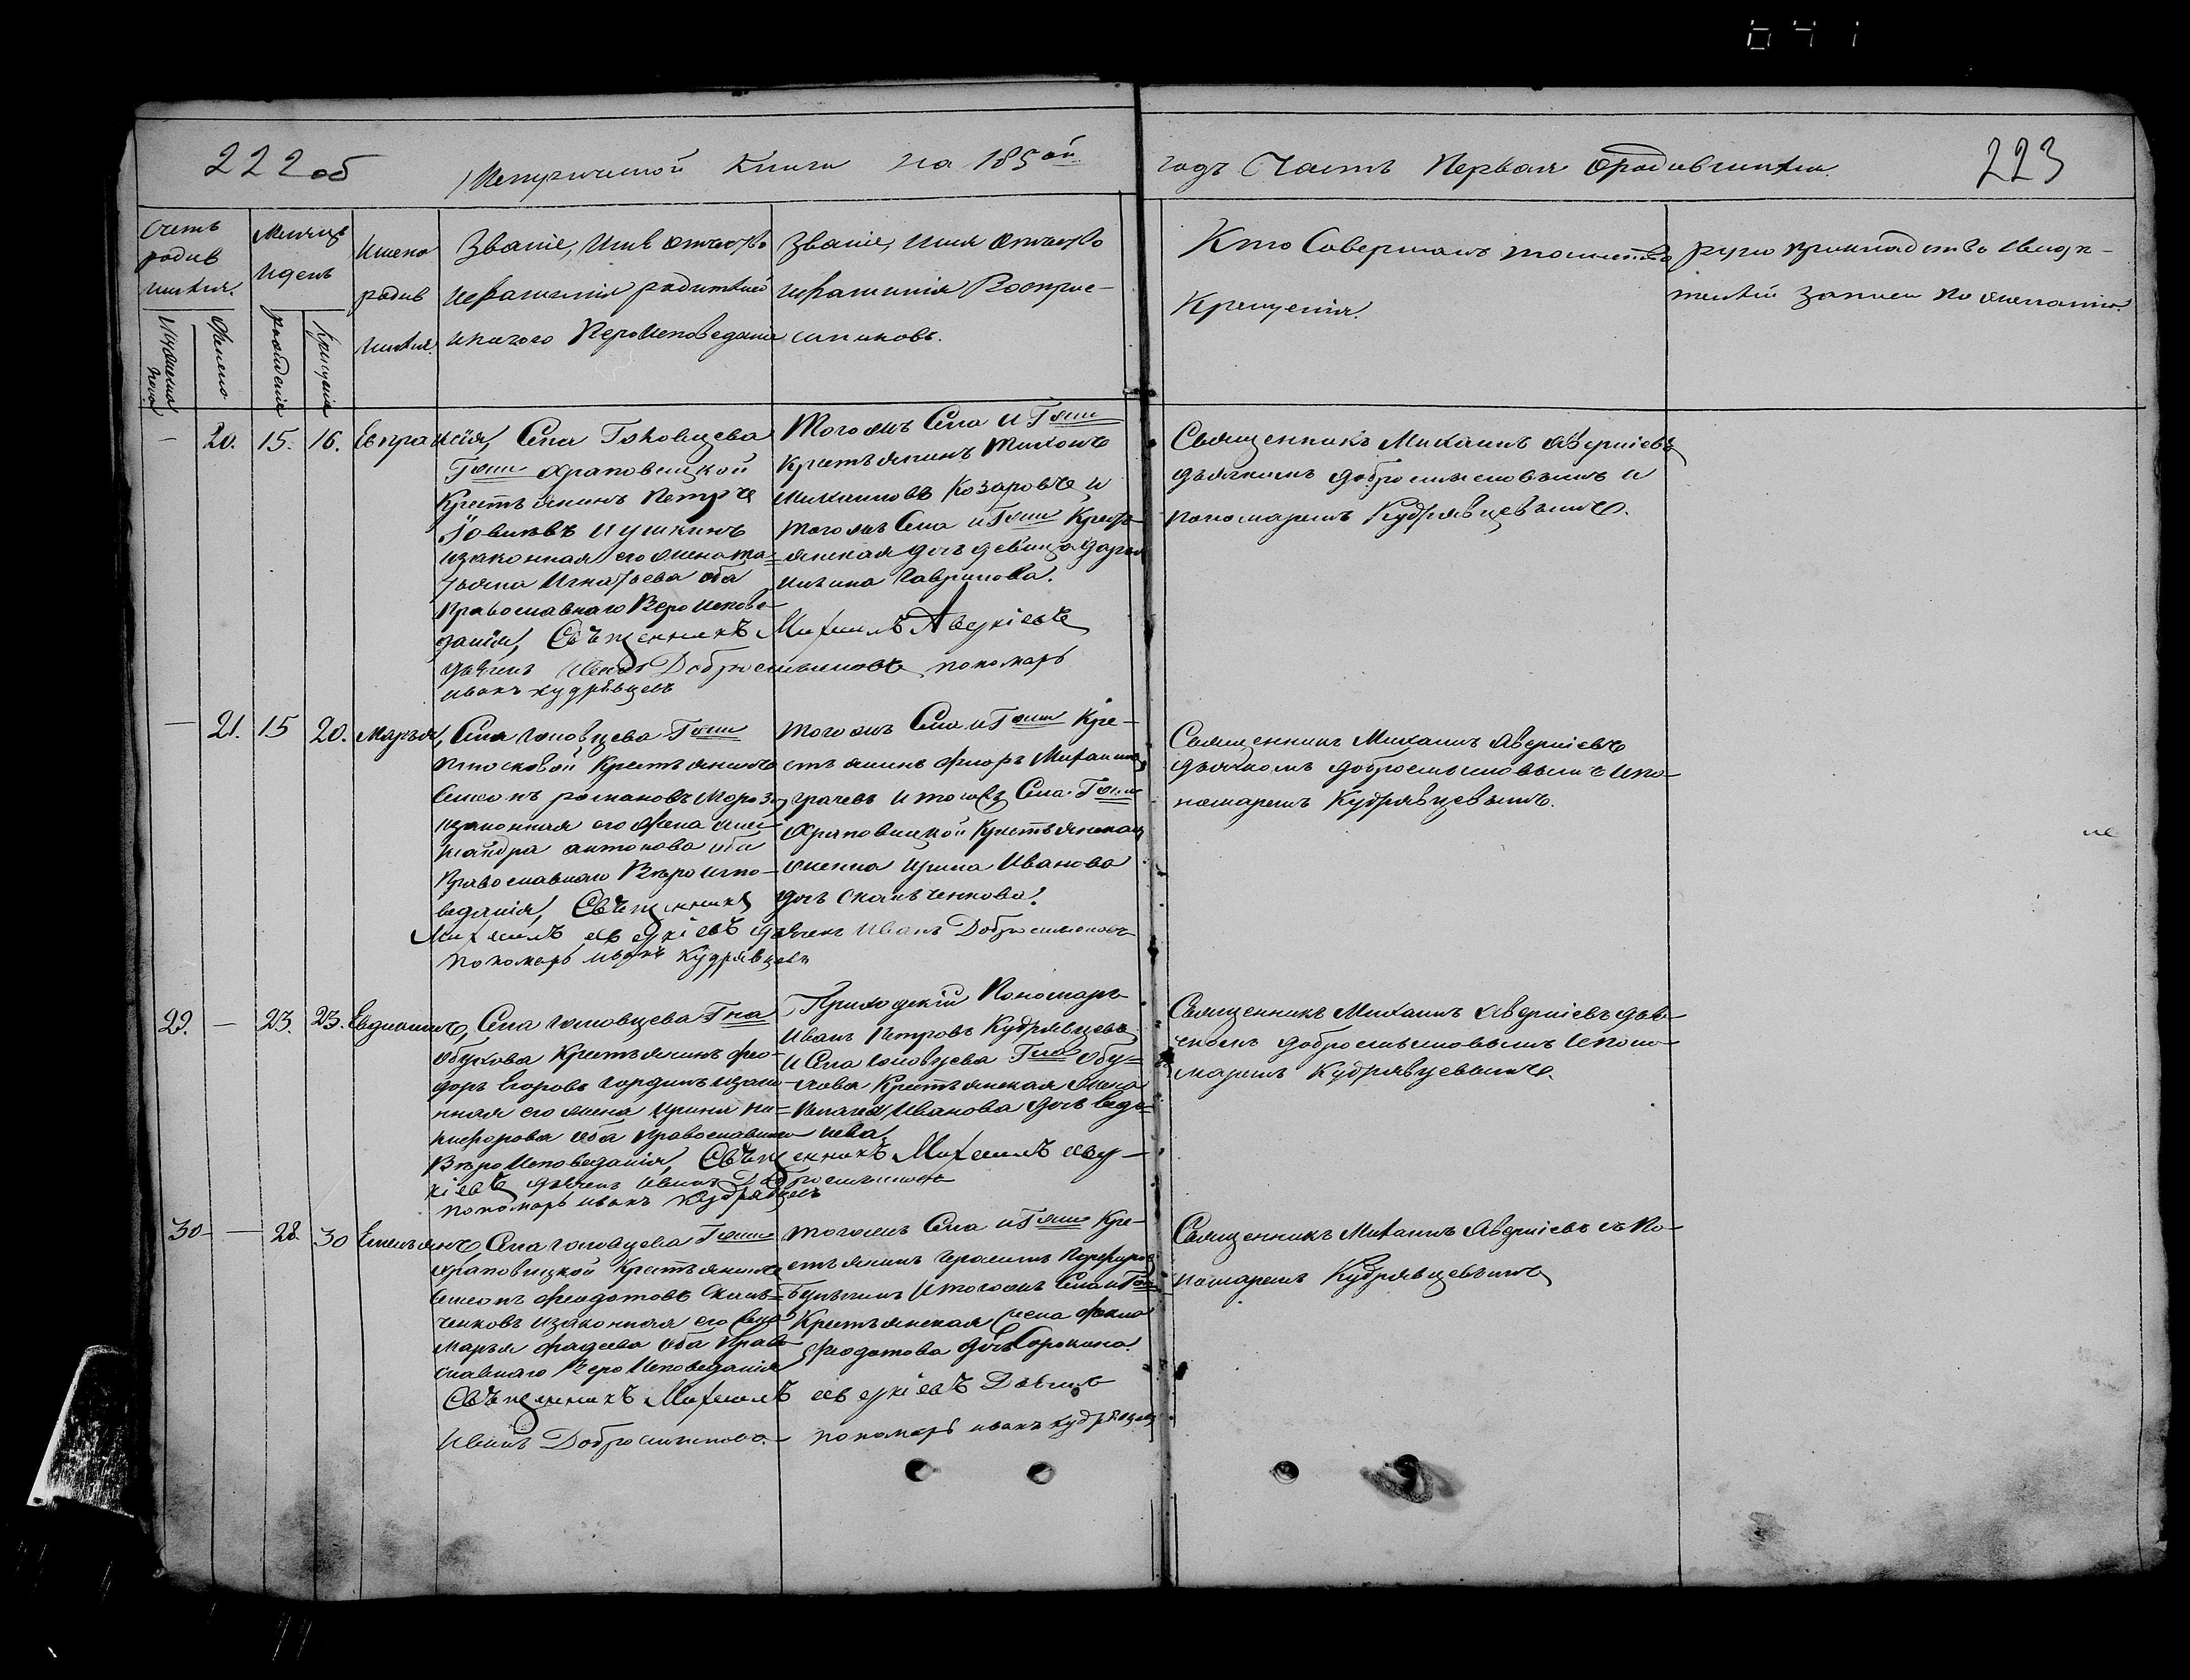 641
222 об
Метрической Книги на 185
годъ Часть Первая о родившихся.
223
Счетъ родив шихся.
Мужеска пола
Женско
Месяцъ и день
рождения
Крещения
Имена родив шихся.
Званіе, Имя отчество
и фамилія родителей
и какого Вероисповедания
Званіе, имя отчество
и фамилия Восприе-
мниковъ.
Кто Совершалъ таинство
Крещенія.
рукоприкладство свиде-
телей записи по желанию.
— 20. 15. 16. Евпраксія, Села Головцева
Гжи Храповицкой
Крестьянинъ Петръ
Іовлевъ
и законная его жена Та-
тьяна Игнатьева оба
Православнаго Вероиспове-
дания, Священникъ Михаилъ Аверкіевъ
дьячекъ Иванъ Добросмысловъ пономарь
иванъ кудрявцевъ
Того жъ Села и Гжи
Крестьянинъ Тихонъ
Михаиловъ Козаровъ и
того жъ Села и Гжи Крест-
янская дочь девица Дарья
Гаврилова.
Священникъ Михаилъ Аверкіевъ
дьячкомъ Добросмысловымъ и
пономаремъ Кудрявцевымъ.
— 21. 15 20. Марья, Села Головцева Гжи
Крестьянинъ
Семенъ романовъ Морозо
и законная его жена Алек-
сандра антонова оба
Православнаго Вероиспо-
ведания, Священникъ
Михаилъ аверкіевъ дьячекъ Иванъ Добросмысловъ
пономарь иванъ Кудрявцевъ
того жъ Села и Гжи Кре-
стьянинъ Флоръ Михаиловъ
грачевъ и того жъ Села Гжи
Храповицкой Крестьянская
женка Ирина Иванова
дочь Сканченкова.
Священникъ Михаилъ Аверкіевъ
дьячкомъ Добросмысловымъ и по-
номаремъ Кудрявцевымъ.
29. — 23. 23. Села Головцева Гна
Обухова Крестьянинъ Фео-
доръ Егоровъ гординъ и зако-
нная его жена Ирина Ни-
кифорова оба Православнаго
Вероисповедания, Священникъ Михаилъ авер-
кіевъ дьячекъ Иванъ Добросмысловъ
пономарь иванъ кудрявцевъ
Приходскій Пономарь
Иванъ Петровъ Кудрявцевъ
и Села Головцева Гна Обу-
хова Крестьянская жена
Пелагея Иванова дочь
Священникъ Михаилъ Аверкіевъ дья-
чкомъ Добросмысловымъ и поно-
маремъ Кудрявцевымъ.
30 — 28. 30 Емельянъ Села Головцева Гжи
Храповицкой Крестьянинъ
Семенъ Феодотовъ Скан-
ченковъ и законная его жена
Марья Фадеева оба Право-
славнаго Вероисповедания
Священникъ Михаилъ аверкіевъ Дьячекъ
Иванъ Добросмысловъ. пономарь иванъ кудрявцевъ
того жъ Села и Гжи Кре-
стьянинъ Герасимъ Порфировъ
и того жъ Села и Гжи
Крестьянская жена Фекла
Феодотова дочь Сорокина.
Священникъ Михаилъ Аверкіевъ съ По-
номаремъ Кудрявцевымъ